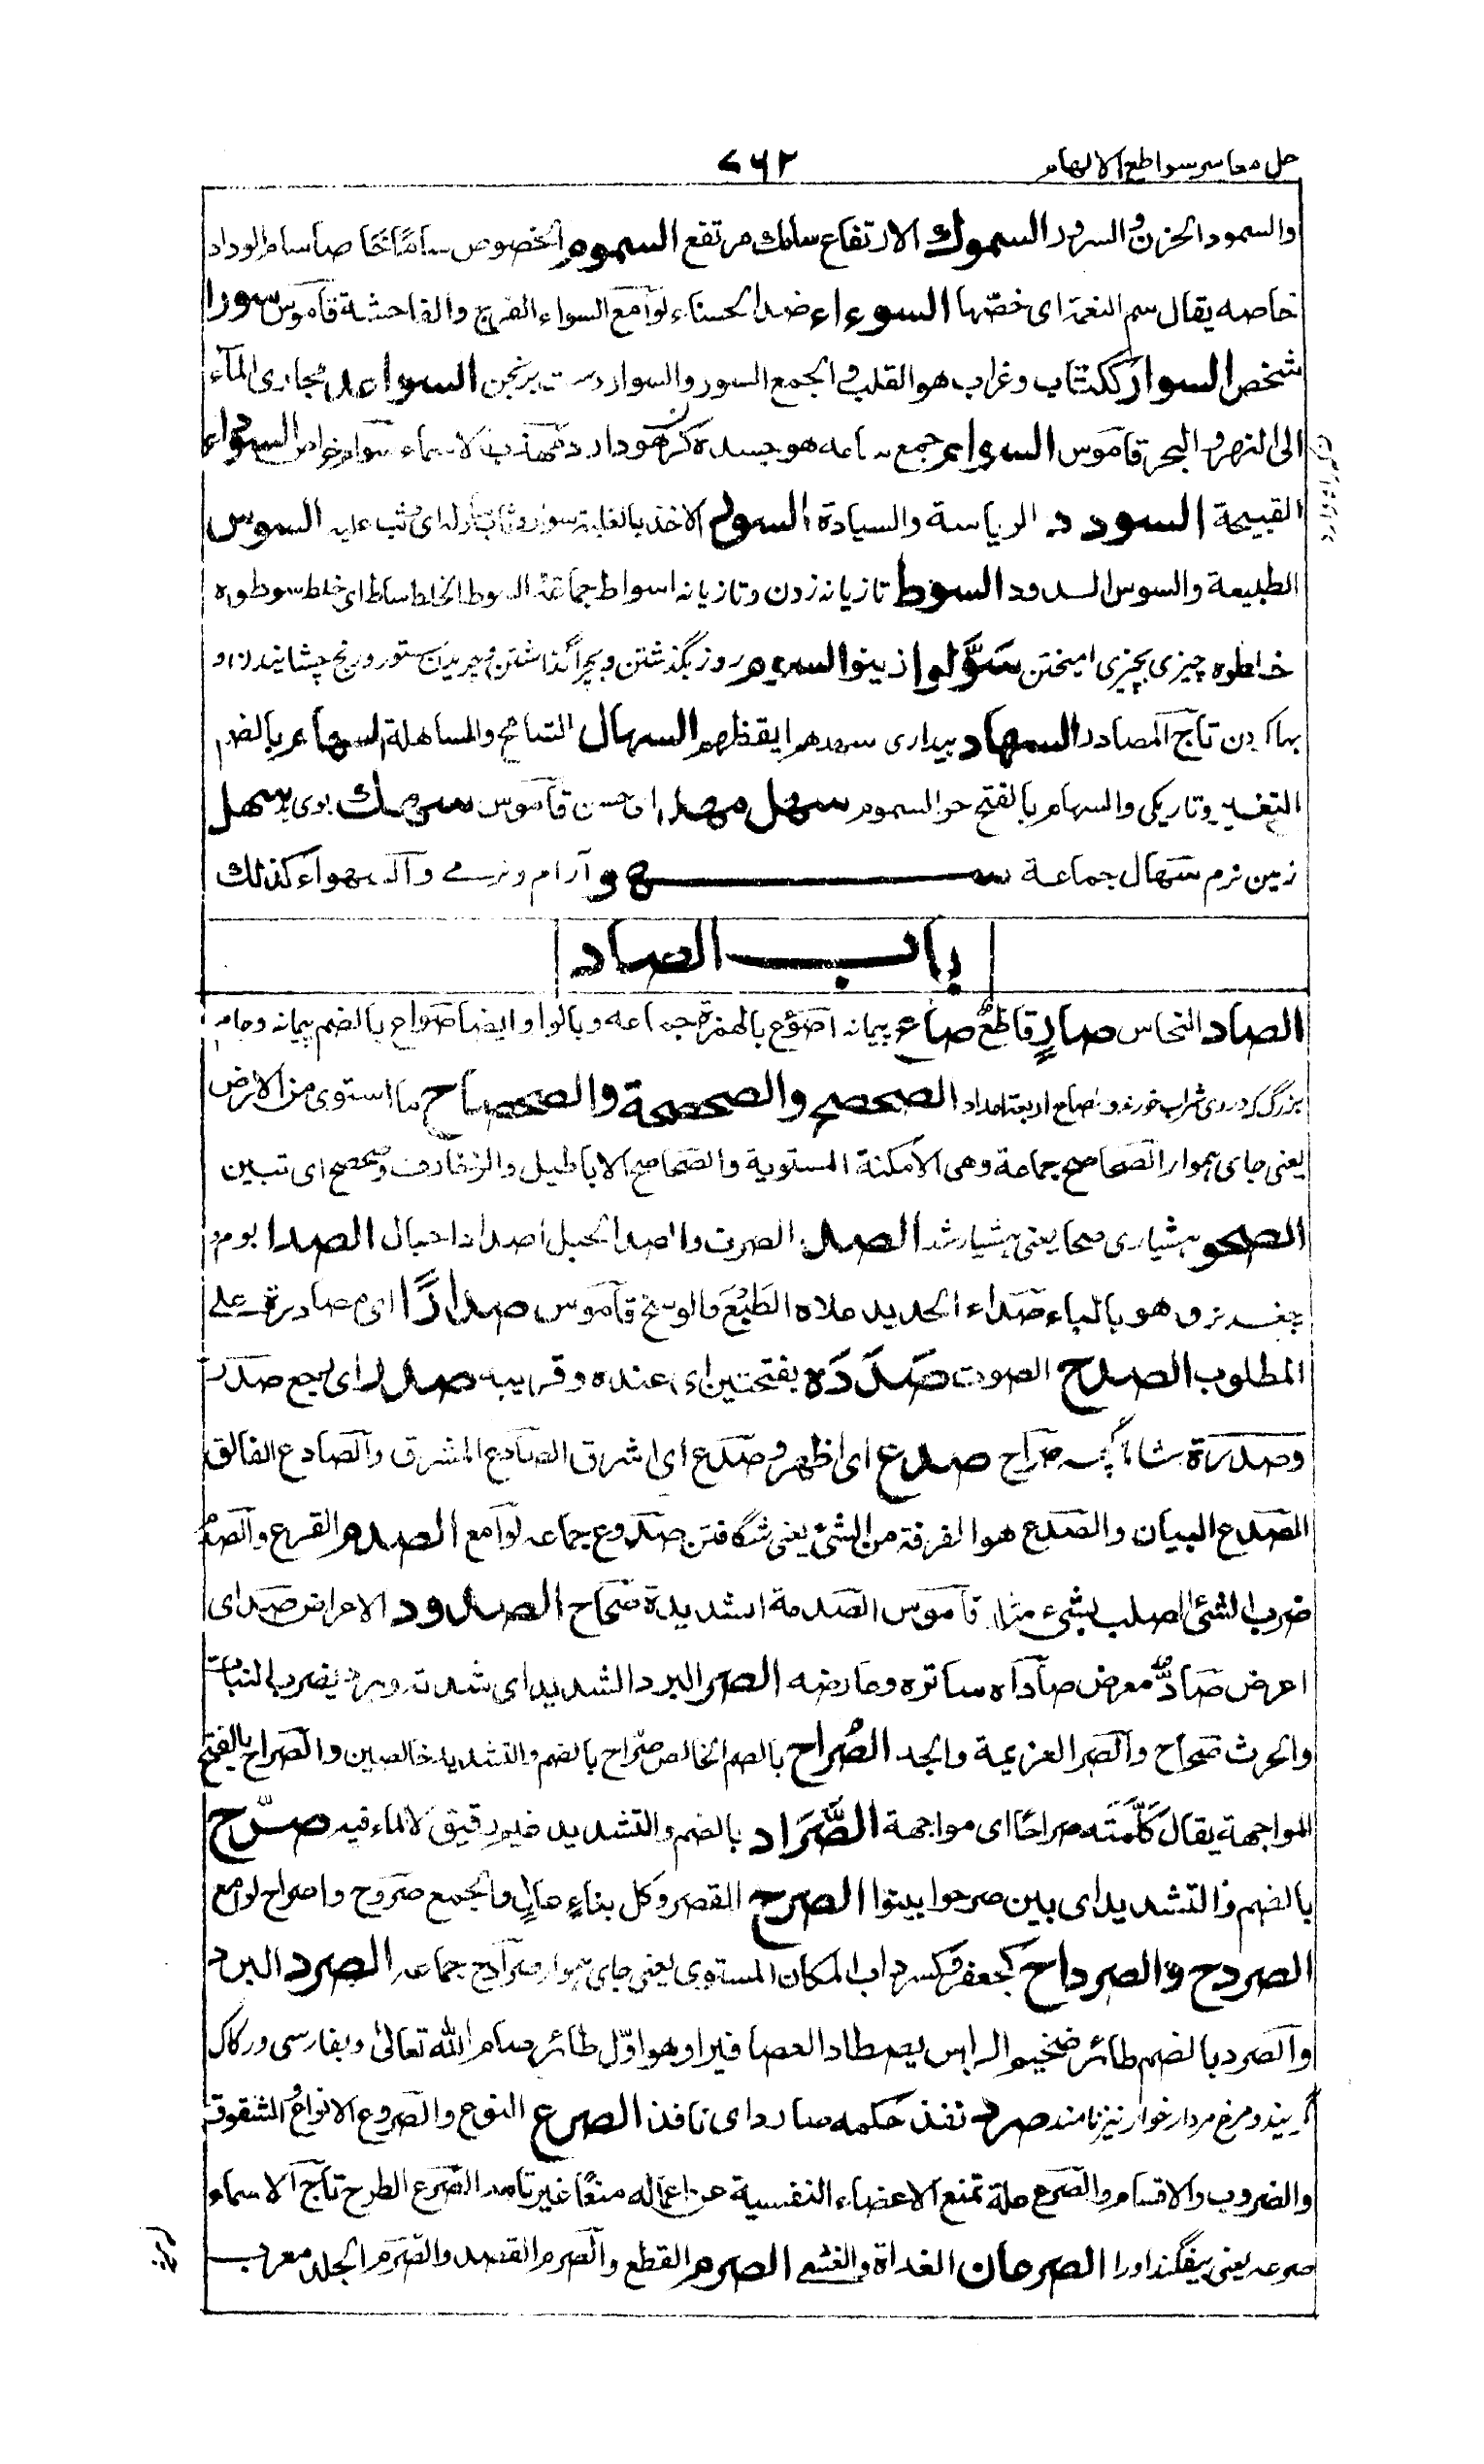 حل معاسر سواطع الالهام ۷۶۲
والسمود الحزن والسرور السموك الارتفاع سامك مرتفع السموم الخصوص صاساط الوداد
خاصه يقال سم النعمة اى خصّها السوءاء ضد الحسناء لوامع السواء الفرج والفاحشة قاموس سورا
شخص السوار ككتاب وغراب هو القلب والجمع السور والسوار دست برنجن السواعد مجارى المآء
الى النهر والبحر قاموس السواعر جمع هو جسده السوداء
القبيحة السودد الرياسة والسيادة السور الاخذ بالغلبة اى وثب عليه السوس
الطبيعة والسوس السدود السوط تازيانه زدن وتازيانه اسواط جماعة السوط الخلط ساط اى خلط سوطوه
خاطوه چيزى بچيزى اميختن سَوَّلوا زينوا السوم روز بگذشتن وبچرا گذاشتن وچريدن ستور ورنج چشانيدن و
بها كردن تاج المصادر السهاد بيدارى سهدهم ايقظهم السهال التسامح والمساهلة السهام بالضم
التغير وتاريكى والسهام بالفتح حر السموم سهل مهد اى حسن قاموس سهك بوى بد سهل
زمين نرم سهال جماعة سهو آرام ونرمے كذلك
باب الصاد
الصاد النحاس صارٍ قاطع صاع پيمانه اصوُع بالهمزة جماعه وبالواو ايضا صواع بالضم پيمانه وجام
بزرگ كه دروى شراب خورند و صاع اربعة امداد الصحصح والصحصحة والصحصاح ما استوى من الارض
يعنى جاى هموار الصحاصح جماعة وهى الامكنة المستوية والصحاصح الاباطيل والزخارف وصحصح اى تبين
الصحو هشيارى صحا يعنى هشيار شد الصد الصرف و الصد الجبل اصداد احبال الصدا بوم و
چغد نر وهو بالباء صداء الحديد علاه الطَبَعَ والوسخ قاموس صدارًا اى مصادرة على
المطلوب الصدح الصوت صَدَدَه بفتحتين اى عنده وقريبه صدر اى رجع صدر
وصدرة شاماكچه صراح صدع اى اظهر وصدع اى اشرق الصادع المشرق والصادع الفالق
الصدع البيان والصدع هو الفرقة من الشئ يعنى شگافتن صدوع جماعه لوامع الصدم القرع والصدم
ضرب الشئ الصلب بشىء مثله قاموس الصدمة الشديدة صحاح الصدود الاعراض صد اى
اعرض صادٌّ معرض صاداه ساتره وعارضه الصر البرد الشديد اى شدته وبرد يضرب النبات
والحرث صحاح والصر العزيمة والجد الصُراح بالضم الخالص صراح بالضم والتشديد خالصين والصراح بالفتح
المواجهة يقال كَلَّمتَه صراحًا اى مواجهة الصُّرَاد بالضم والتشديد غيم رقيق لا ماء فيه صرّح
بالضم والتشديد اى بين صرحوا بينوا الصرح القصر وكل بناءٍ عالٍ والجمع صروح واصراح لوامع
الصردح والصرداح كجعفر وكسرداب المكان المستوى يعنى جاى هموار صرادح جماعه الصرد البرد
والصرد بالضم طائر ضخيم الراس يصطاد العصافير او هو اوّل طائر صام لله تعالى وبفارسى وركاك
گويند ومرغ مردار خوار نيز نامند صرد نفذ حكمه صارد اى نافذ الصرع النوع والصروع الانواع والشقوق
والضروب والاقسام والصرع علة تمنع الاعضاء النفسية عن اعماله منعًا غير تام والصرع الطرح تاج الاسماء
صرعه يعنى بيفگند اورا الصرعان الغداة والغشى الصرم القطع والصرم القصد والصرم الجلد معرب